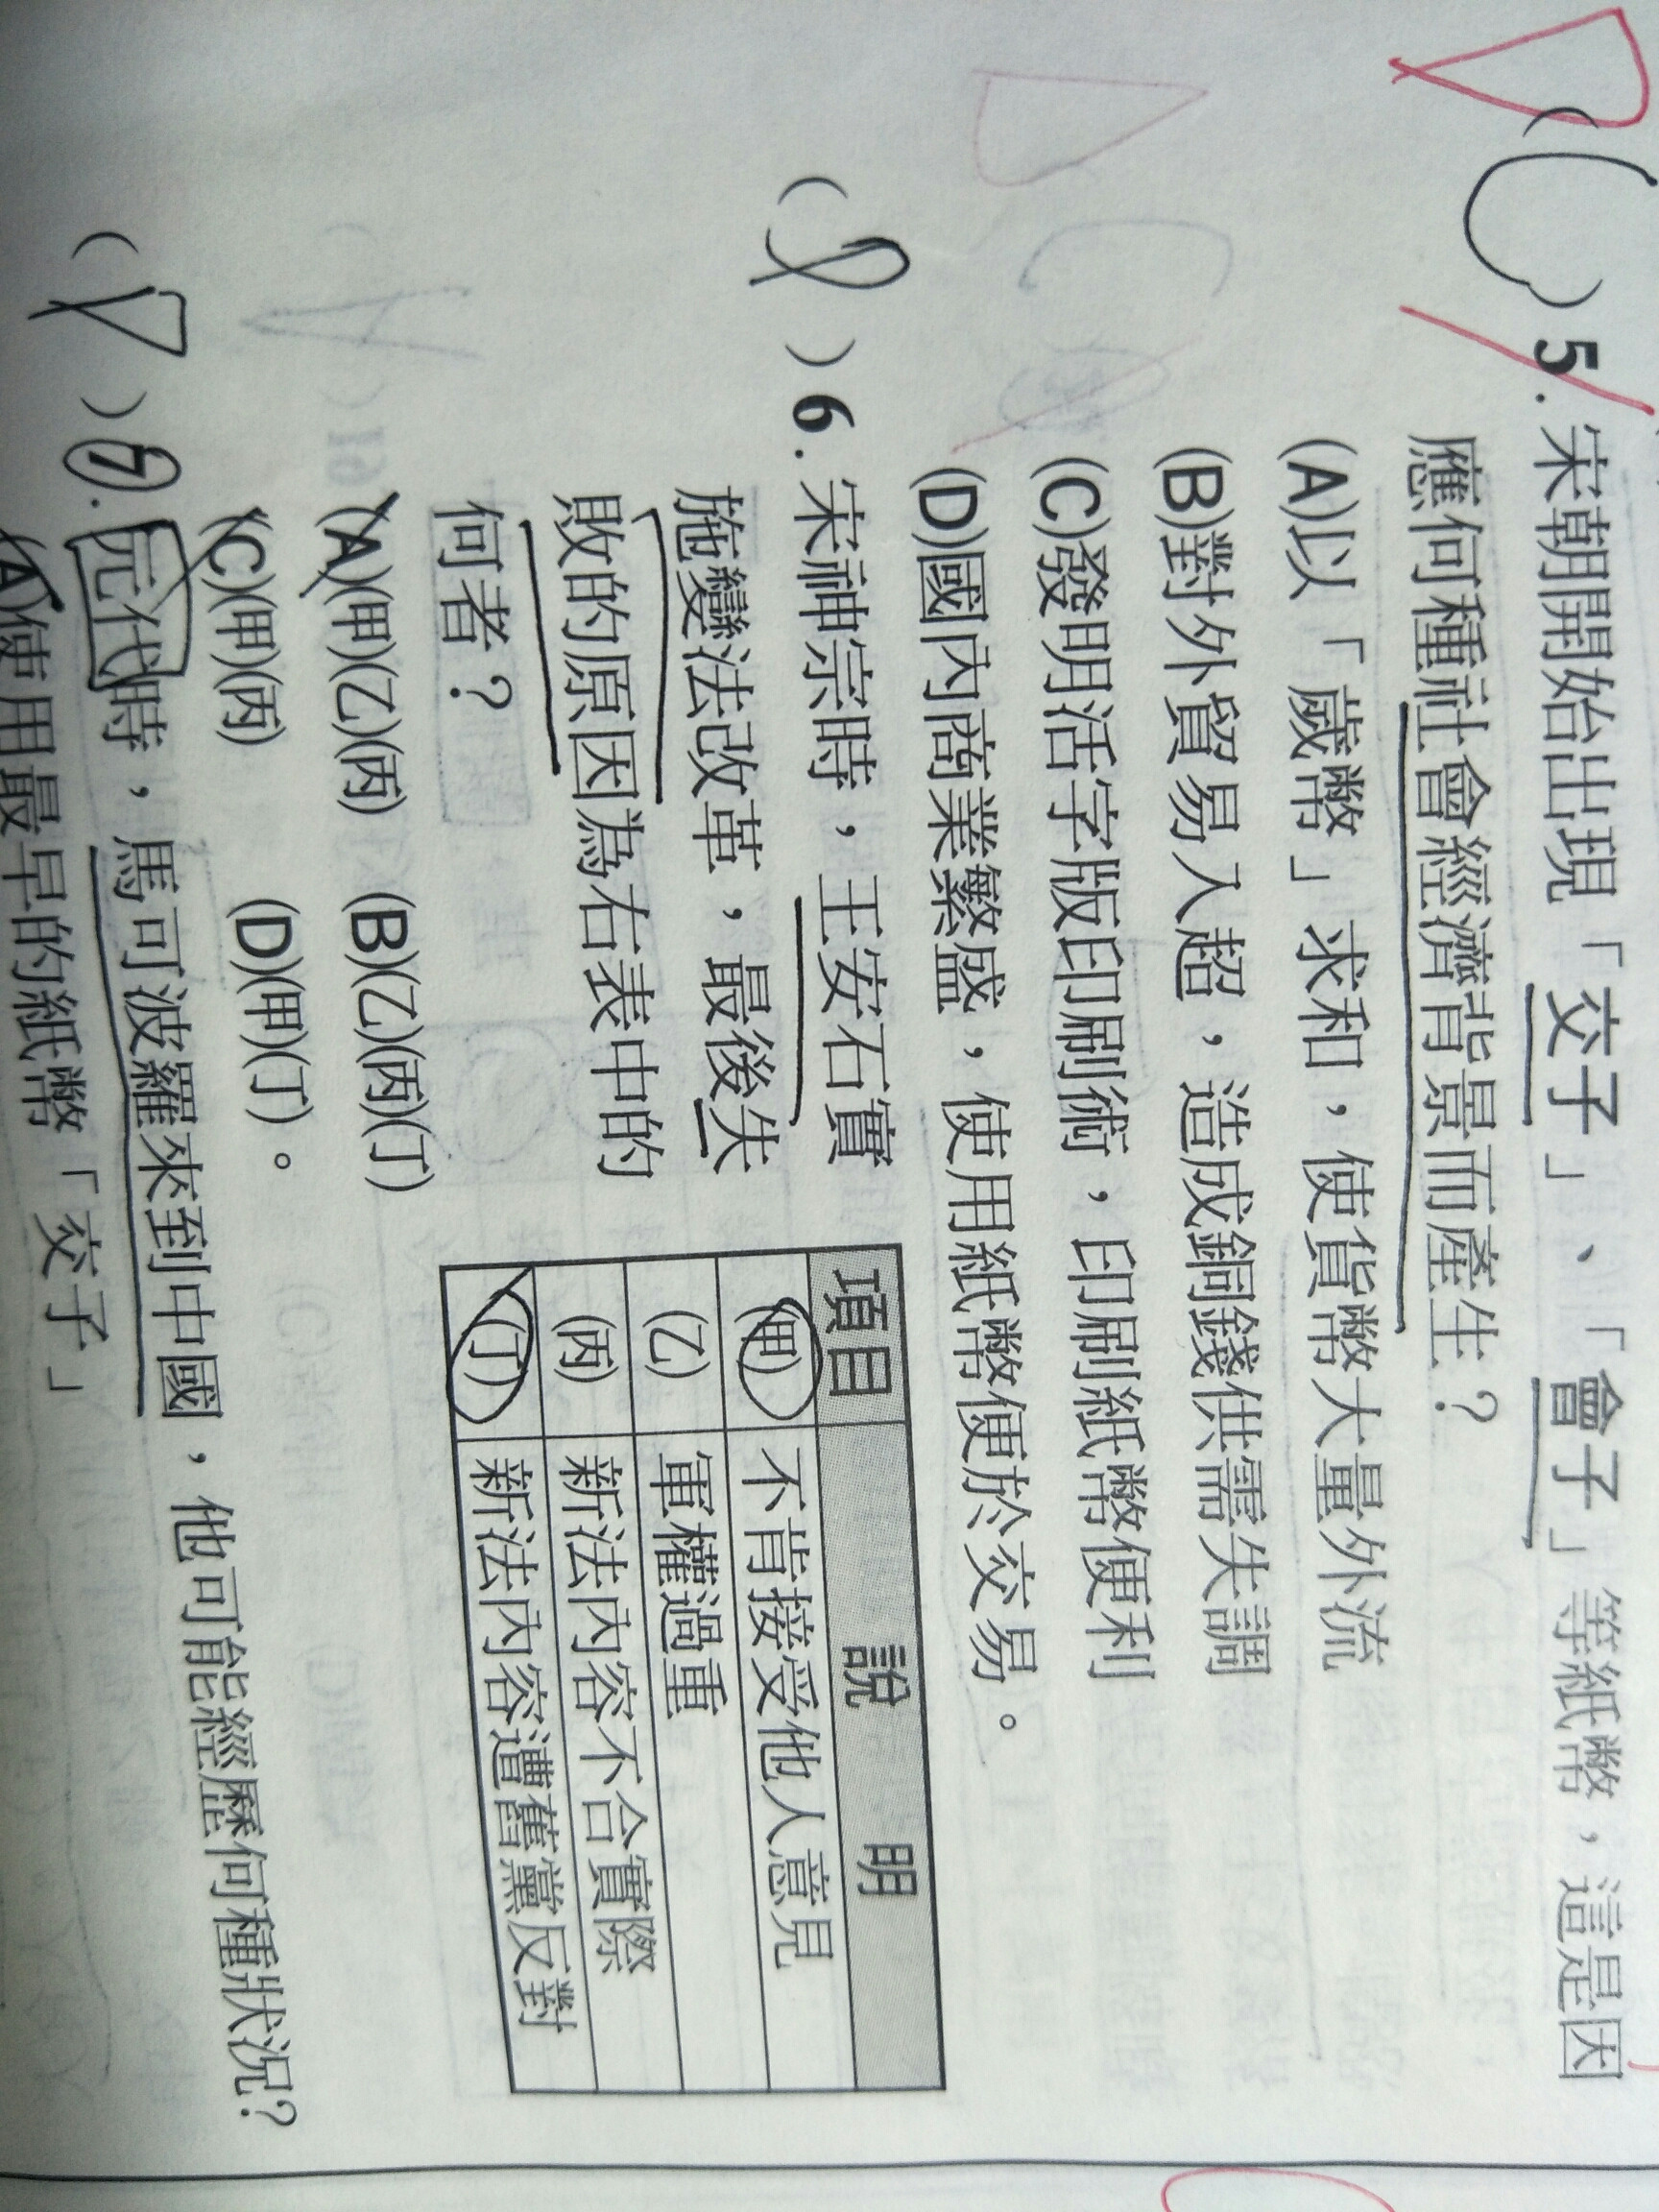 D
(C)5.宋朝開始出現「交子」、「會子」等紙幣,這是因
應何種社會經濟背景而產生?
(A)以「歲幣」求和,使貨幣大量外流
(B)對外貿易入超,造成銅錢供需失調
(C)發明活字版印刷術,印刷紙幣便利
(D)國內商業繁盛,使用紙幣便於交易。
(D)6.宋神宗時,王安石實
施變法改革,最後失
敗的原因為右表中的
何者?
(A)(甲)(乙)(丙) (B)(乙)(丙)(丁)
(C)(甲)(丙) (D)(甲)(丁)。
項目 說 明
(甲) 不肯接受他人意見
(乙) 軍權過重
(丙) 新法內容不合實際
(丁) 新法內容遭舊黨反對
(D)7.元代時,馬可波羅來到中國,他可能經歷何種狀況?
(A)使用最早的紙幣「交子」